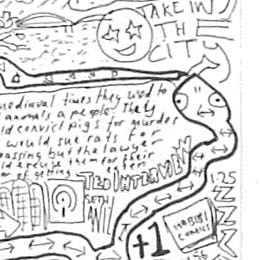 TAKE IN
TH
CITY
mediaval times they used to
animals a people. They
ld convict pigs for murder
would sue cats for
passing but the lawyer
ld excuse them for their
of getting
TED INTERVIEW
SETH
125
NNN
+1
156